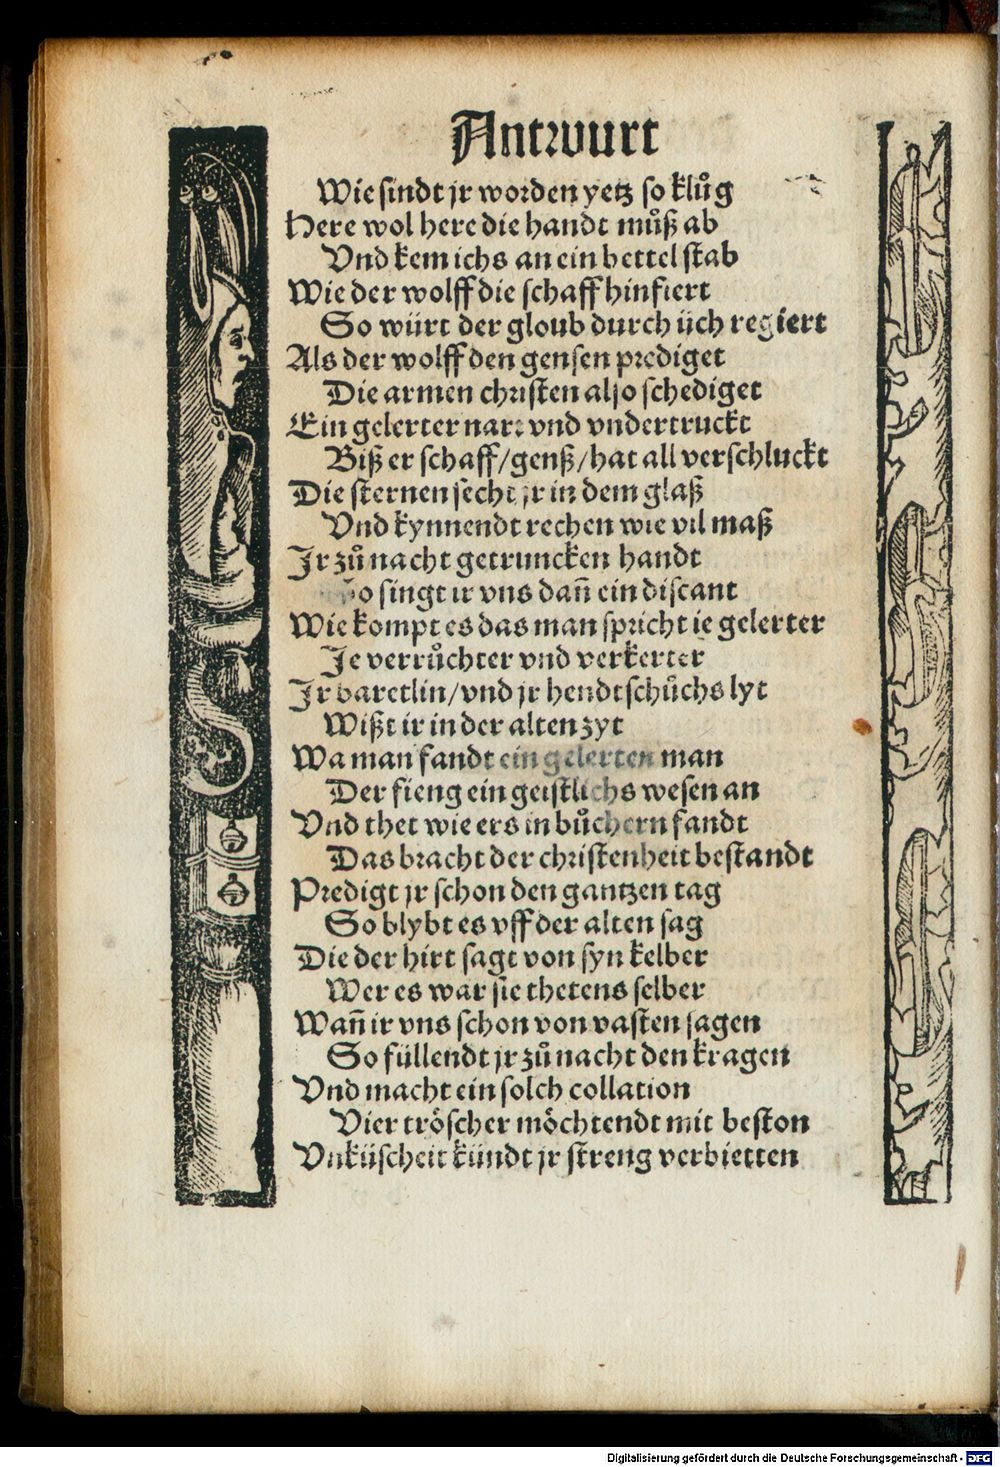 Antwurt
Wie sindt jr worden yetz so klůg
Here wol here die handt můß ab
Vnd kem ichs an ein bettel stab
Wie der wolff die schaff hinfiert
So würt der gloub durch üch regiert
Als der wolff den gensen prediget
Die armen christen also schediget
Ein gelerter narr vnd vndertruckt
Biß er schaff/genß/hat all verschluckt
Die sternen secht jr in dem glaß
Vnd kynnendt rechen wie vil maß
Jr zů nacht getruncken handt
So singt ir vns dañ ein discant
Wie kompt es das man spricht ie gelerter
Je verrůchter vnd verkerter
Jr baretlin/vnd jr hendtschůchs lyt
Wißt ir in der alten zyt
Wa man fandt ein gelerten man
Der fieng ein geistlichs wesen an
Vnd thet wie ers in bůchern fandt
Das bracht der christenheit bestandt
Predigt jr schon den gantzen tag
So blybt es vff der alten sag
Die der hirt sagt von syn kelber
Wer es war sie thetens selber
Wañ ir vns schon von vasten sagen
So füllendt jr zů nacht den kragen
Vnd macht ein solch collation
Vier tröscher möchtendt mit beston
Vnküscheit kündt jr streng verbietten
Digitalisierung gefördert durch die Deutsche Forschungsgemeinschaft - DFG